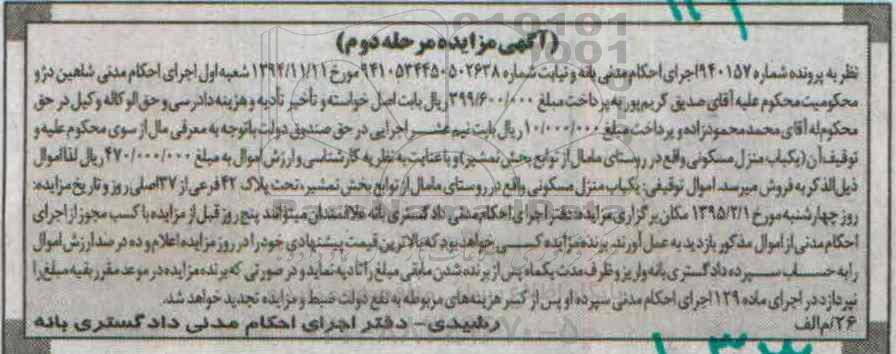 (آگهی مزایده مرحله دوم)
نظر به پرونده شماره ۹۴۰۱۵۷ اجرای احکام مدنی بانه و نیابت شماره ۹۴۱۰۵۳۴۴۵۰۵۰۲۶۳۸ مورخ ۱۳۹۴/۱۱/۱۱ شعبه اول اجرای احکام مدنی شاهین دژ و
محکومیت محکوم علیه آقای صدیق کریم پور به پرداخت مبلغ ۳۹۹/۶۰۰/۰۰۰ ریال بابت اصل خواسته و تأخیر تأدیه و هزینه دادرسی و حق الوکاله وکیل در حق
محکوم له آقای محمد محمودزاده و پرداخت مبلغ ۱۰/۰۰۰/۰۰۰ ریال بابت نیم عشر اجرایی در حق صندوق دولت باتوجه به معرفی مال از سوی محکوم علیه و
توقیف آن (یکباب منزل مسکونی واقع در روستای مامال از توابع بخش نمشیر) و با عنایت به نظریه کارشناسی و ارزش اموال به مبلغ ۴۷۰/۰۰۰/۰۰۰ ریال لذا اموال
ذیل الذکر به فروش میرسد. اموال توقیفی: یکباب منزل مسکونی واقع در روستای مامال از توابع بخش نمشیر، تحت پلاک ۴۲ فرعی از ۳۷ اصلی روز و تاریخ مزایده:
روز چهارشنبه مورخ ۱۳۹۵/۲/۱ مکان برگزاری مزایده: دفتر اجرای احکام مدنی دادگستری بانه علاقمندان میتوانند پنج روز قبل از مزایده با کسب مجوز از اجرای
احکام مدنی از اموال مذکور بازدید به عمل آورند. برنده مزایده کسی خواهد بود که بالاترین قیمت پیشنهادی خود را در روز مزایده اعلام و ده درصد ارزش اموال
را به حساب سپرده دادگستری بانه واریز و ظرف مدت یکماه پس از برنده شدن مابقی مبلغ را تادیه نماید و در صورتی که برنده مزایده در موعد مقرر بقیه مبلغ را
نپردازد در اجرای ماده ۱۲۹ اجرای احکام مدنی سپرده او پس از کسر هزینه های مربوطه به نفع دولت ضبط و مزایده تجدید خواهد شد.
۲۶/م الف رشیدی - دفتر اجرای احکام مدنی دادگستری بانه